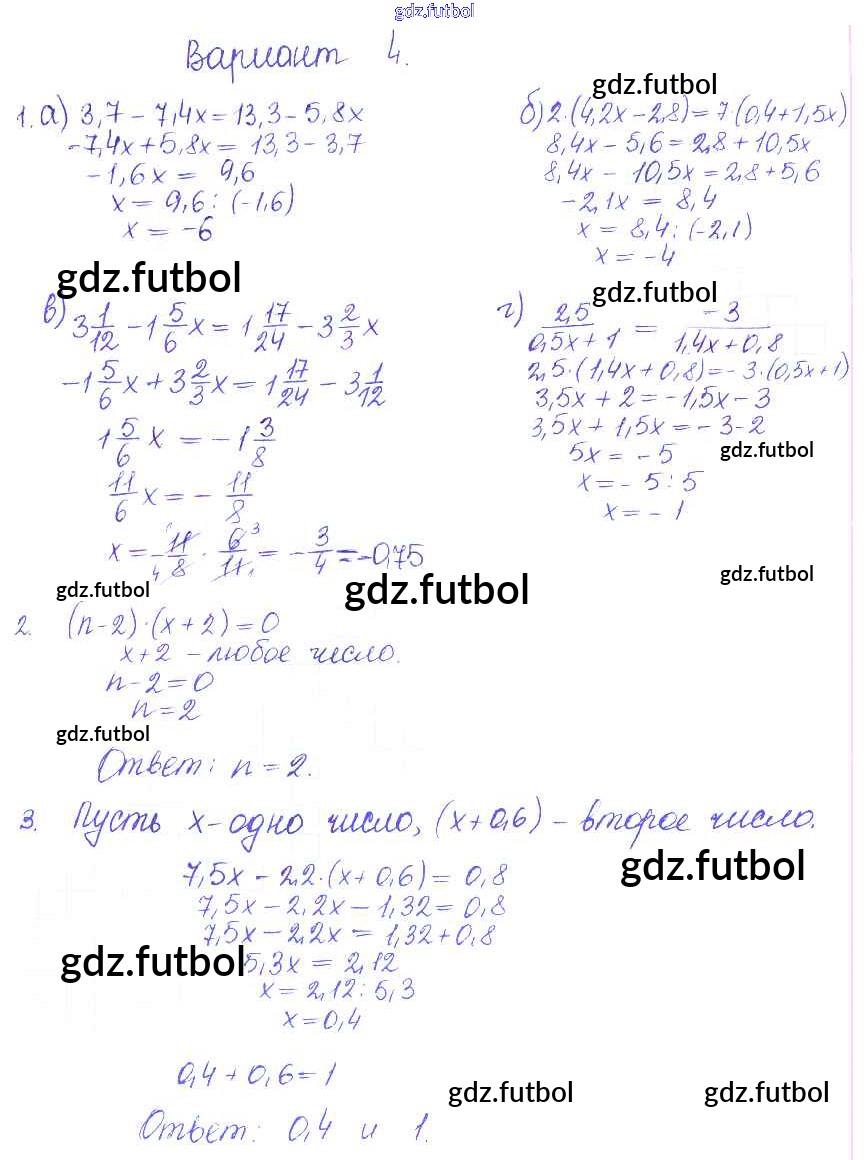 gdz.futbol
Вариант 4.
gdz.futbol
1. а) 3,7 - 7,4x = 13,3 - 5,8x
-7,4x + 5,8x = 13,3 - 3,7
-1,6x = 9,6
x = 9,6 : (-1,6)
x = -6
б) 2·(4,2x - 2,8) = 7·(0,4 + 1,5x)
8,4x - 5,6 = 2,8 + 10,5x
8,4x - 10,5x = 2,8 + 5,6
-2,1x = 8,4
x = 8,4 : (-2,1)
x = -4
gdz.futbol
gdz.futbol
в) 3 1/12 - 1 5/6 x = 1 17/24 - 3 2/3 x
-1 5/6 x + 3 2/3 x = 1 17/24 - 3 1/12
1 5/6 x = -1 3/8
11/6 x = - 11/8
x = - 11/8 · 6/11 = - 3/4 = -0,75
г) 2,5/(0,5x + 1) = -3/(1,4x + 0,8)
2,5·(1,4x + 0,8) = -3·(0,5x + 1)
3,5x + 2 = -1,5x - 3
3,5x + 1,5x = -3 - 2
5x = -5
gdz.futbol
x = -5 : 5
x = -1
gdz.futbol
gdz.futbol
gdz.futbol
2. (n-2)·(x+2) = 0
x+2 - любое число.
n-2 = 0
n = 2
gdz.futbol
Ответ: n = 2.
3. Пусть x - одно число, (x+0,6) - второе число.
gdz.futbol
7,5x - 2,2·(x+0,6) = 0,8
7,5x - 2,2x - 1,32 = 0,8
7,5x - 2,2x = 1,32 + 0,8
gdz.futbol
5,3x = 2,12
x = 2,12 : 5,3
x = 0,4
0,4 + 0,6 = 1
gdz.futbol
gdz.futbol
Ответ: 0,4 и 1.